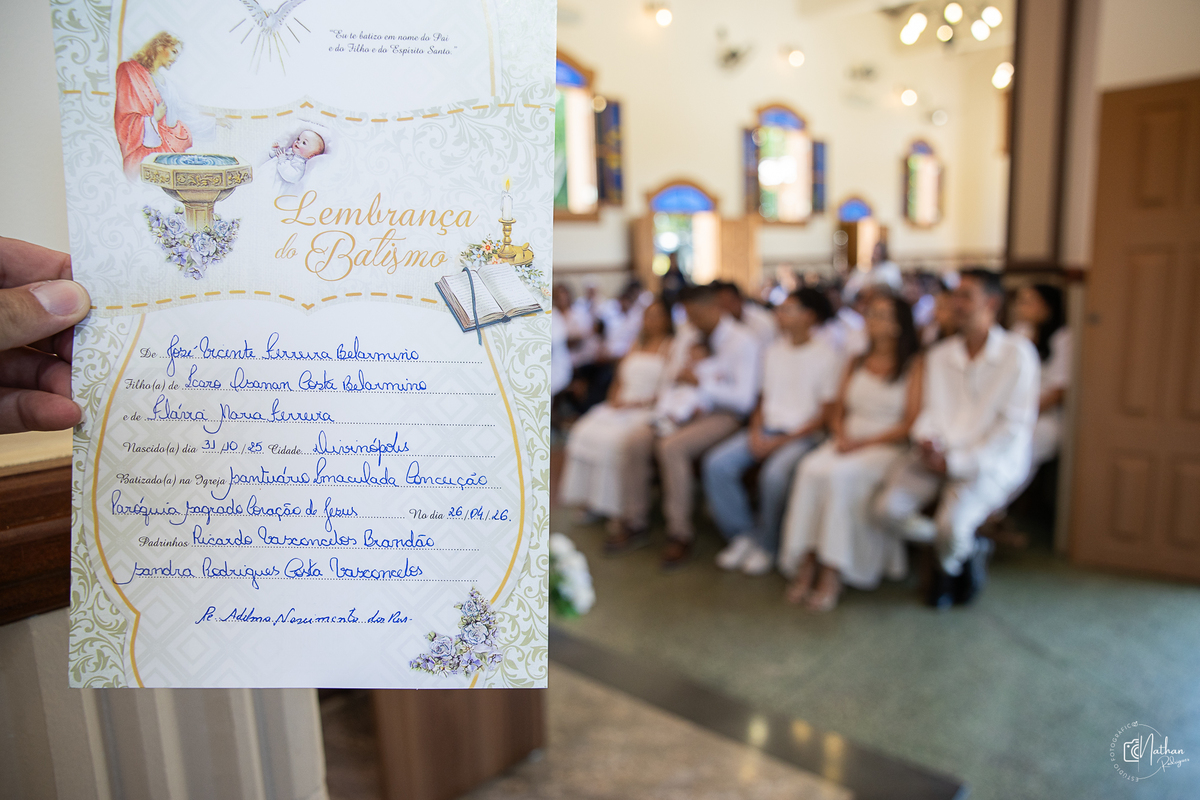 "Eu te batizo em nome do Pai
e do Filho e do Espírito Santo."
Lembrança
do Batismo
De José Vicente Ferreira Belarmino
Filho(a) de Icaro Renan Costa Belarmino
e de Flávia Maria Ferreira
Nascido(a) dia 31/10/25 Cidade Divinópolis
Batizado(a) na Igreja Santuário Imaculada Conceição
Paróquia Sagrado Coração de Jesus No dia 26/04/26.
Padrinhos Ricardo Vasconcelos Brandão
Sandra Rodrigues Costa Vasconcelos
Pe. Nascimento dos Reis
Nathan
Rodrigues
ESTÚDIO FOTOGRÁFICO